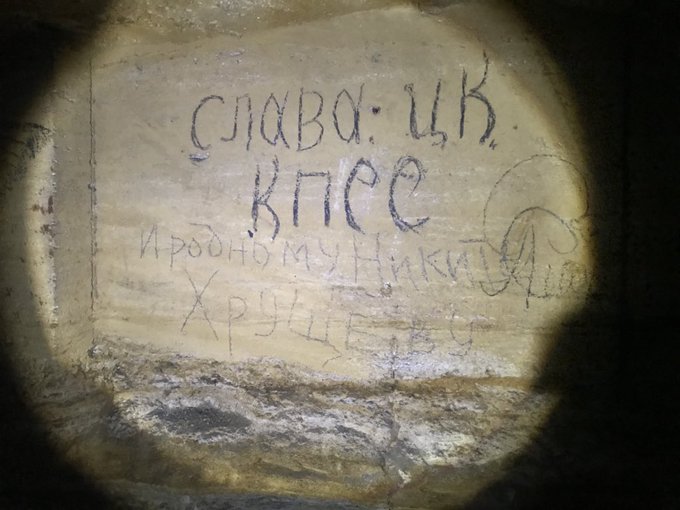 слава: ЦК
КПСС
И родному Никит
Хрущеву